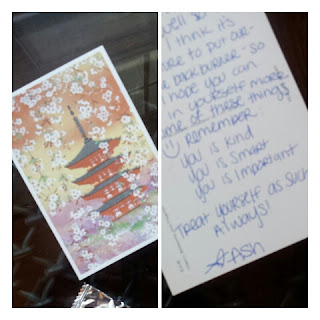 I think it's
to put our-
a back burner - so
I hope you can
in yourself more &
some of these things!
Remember:
you is kind
you is smart
you is important
Treat yourself as such
Always!
Ash